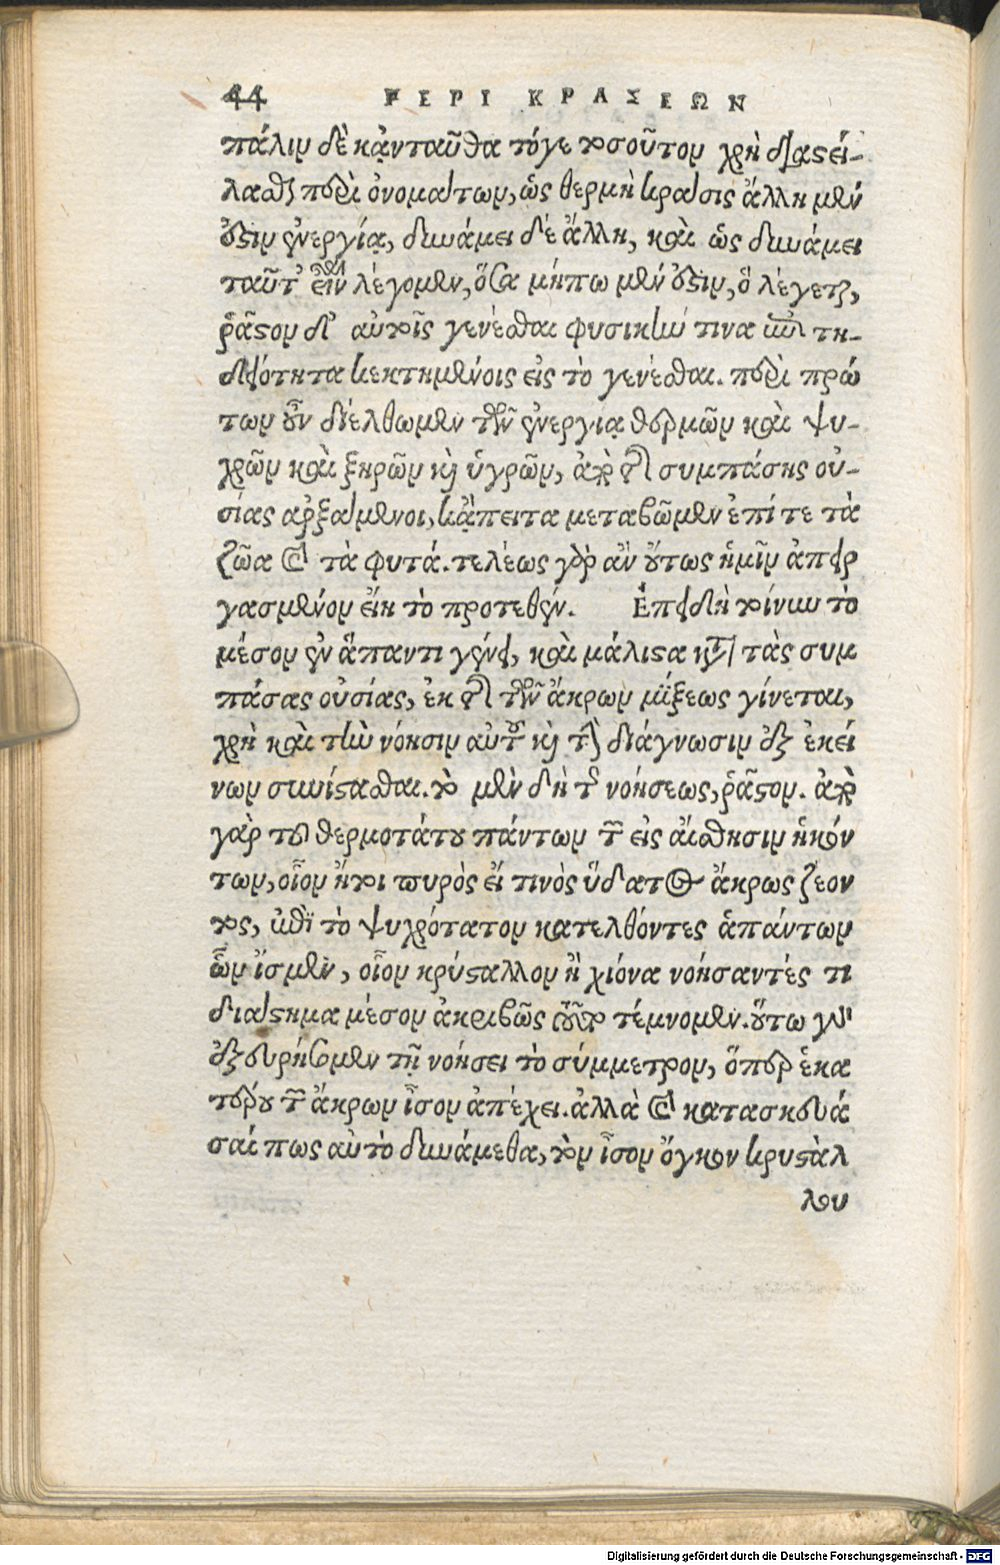 44 ΠΕΡΙ ΚΡΑΣΕΩΝ
πάλιν δὲ κᾀνταῦθα τόγε τοσοῦτον χρὴ διαστεί-
λασθαι περὶ ὀνομάτων, ὡς θερμὴ κρᾶσις ἄλλη μέν
ἐστιν ἐνεργίᾳ, δυνάμει δὲ ἄλλη, καὶ ὡς δυνάμει
ταῦτ' εἶναι λέγομεν, ὅσα μήπω μέν ἐστιν, ὃ λέγεται,
ῥᾷστον δ' αὐτοῖς γενέσθαι φυσικήν τινα ἐπιτη-
δειότητα κεκτημένοις εἰς τὸ γενέσθαι. περὶ πρώ
των οὖν διέλθωμεν τῶν ἐνεργίᾳ θερμῶν καὶ ψυ-
χρῶν καὶ ξηρῶν καὶ ὑγρῶν, ἀπὸ τῆς συμπάσης οὐ-
σίας ἀρξάμενοι, κᾄπειτα μεταβῶμεν ἐπί τε τὰ
ζῶα καὶ τὰ φυτά. τελέως γὰρ ἂν οὕτως ἡμῖν ἀπειρ
γασμένον εἴη τὸ προτεθέν. Ἐπειδὴ τοίνυν τὸ
μέσον ἐν ἅπαντι γένει, καὶ μάλιστα κατὰ τὰς συμ
πάσας οὐσίας, ἐκ τῆς τῶν ἄκρων μίξεως γίνεται,
χρὴ καὶ τὴν νόησιν αὐτοῦ καὶ τὴν διάγνωσιν ἐξ ἐκεί
νων συνίστασθαι. τὸ μὲν δὴ τῆς νοήσεως, ῥᾷστον. ἀπὸ
γὰρ τοῦ θερμοτάτου πάντων τῶν εἰς αἴσθησιν ἡκόν
των, οἷον ἤτοι πυρὸς εἴ τινὸς ὕδατος ἄκρως ζεον
τος, ἐπὶ τὸ ψυχρότατον κατελθόντες ἁπάντων
ὧν ἴσμεν, οἷον κρύσταλλον ἢ χιόνα νοήσαντές τι
διάστημα μέσον ἀκριβῶς τοῦτο τέμνομεν. οὕτω γὰρ
ἐξευρήσομεν τῇ νοήσει τὸ σύμμετρον, ὅπερ ἑκα
τέρου τῶν ἄκρων ἴσον ἀπέχει. ἀλλὰ καὶ κατασκευά
σαί πως αὐτὸ δυνάμεθα, τὸν ἴσον ὄγκον κρυστὰλ
λου
Digitalisierung gefördert durch die Deutsche Forschungsgemeinschaft - DFG